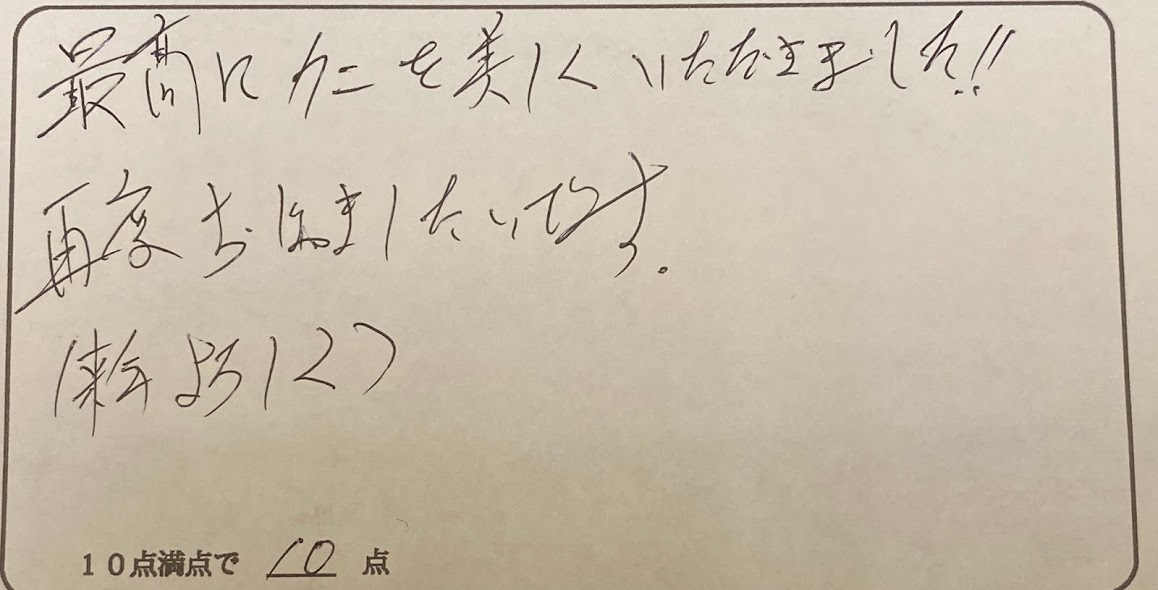 最高にカニを美しくいただきました!!
再度お泊ましたいです。
(来年よろしく)
10点満点で 10 点